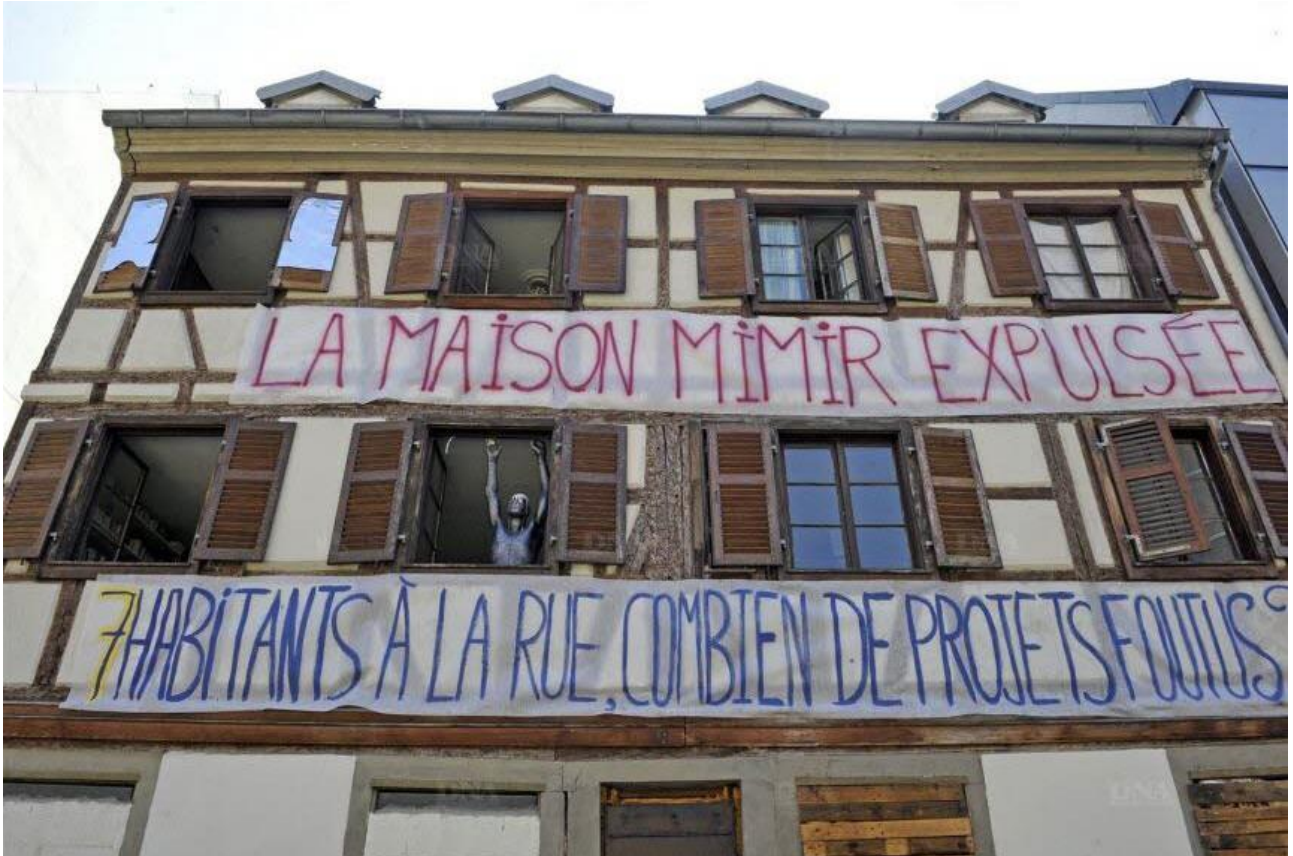 LA MAiSON MiMiR EXPULSÉE
7 HABiTANTS À LA RUE, COMBIEN DE PROJETS FOUTUS?
DNA